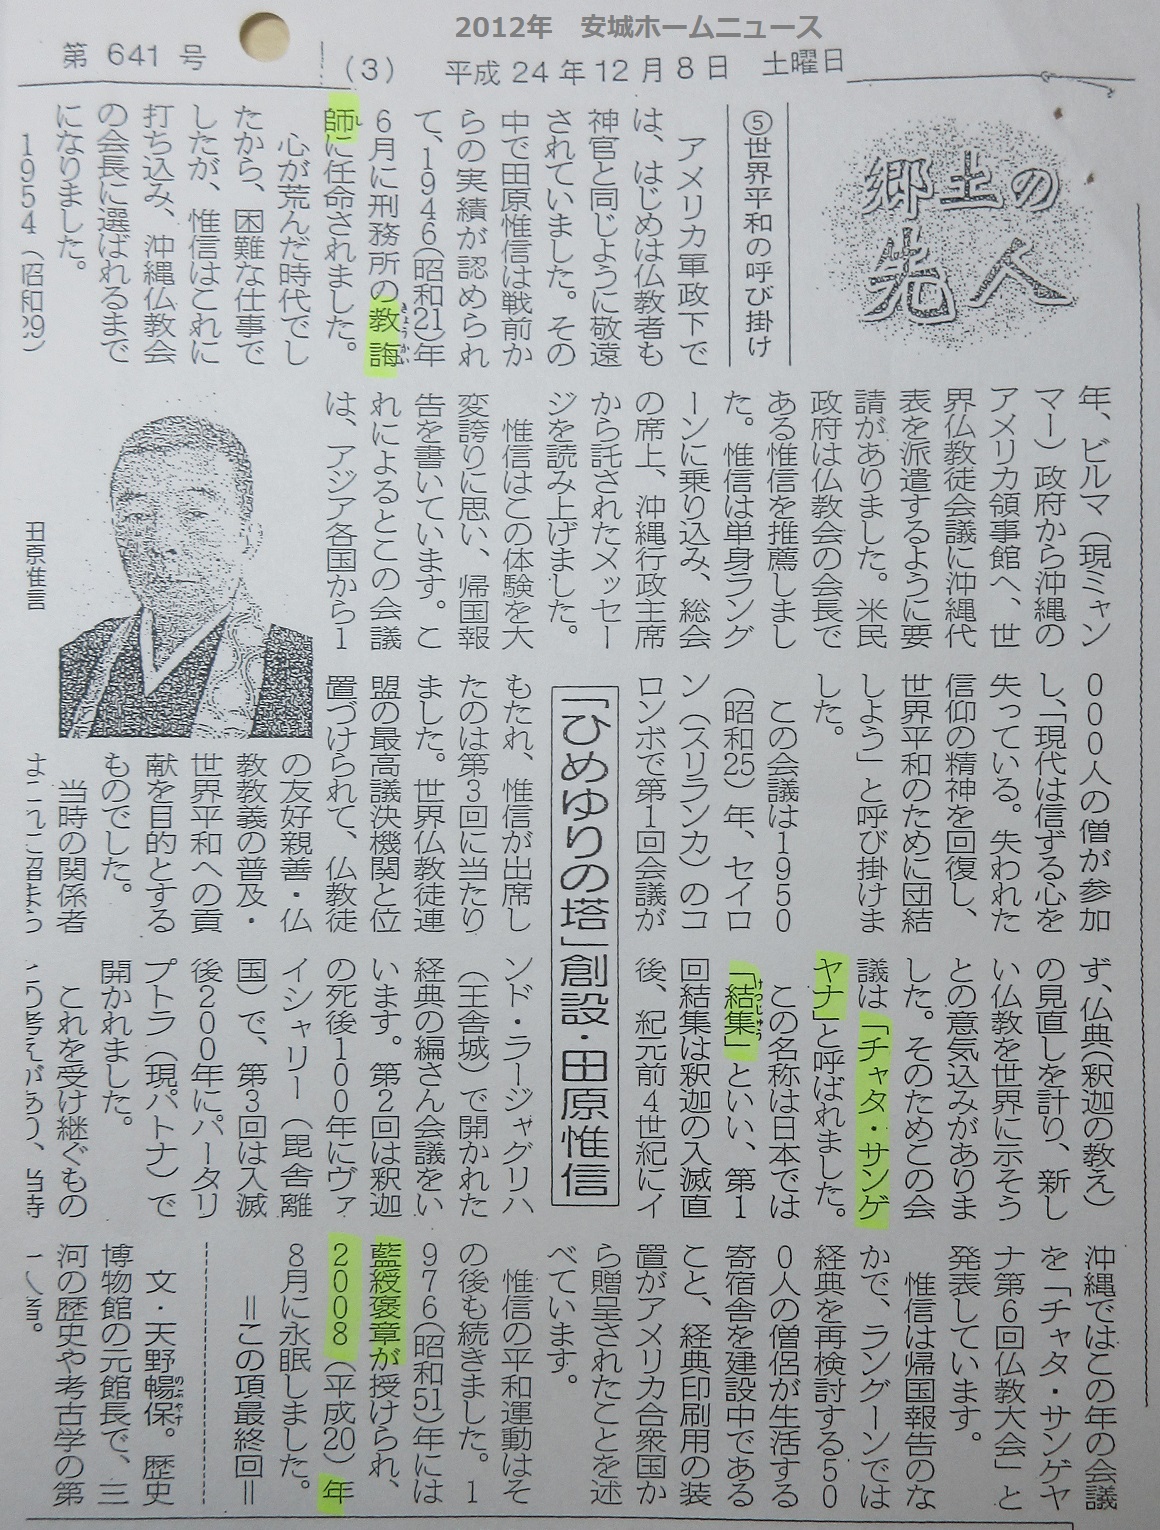 2012年　安城ホームニュース
第 641 号
(3)
平成 24 年 12 月 8 日　土曜日
郷土の
先人
⑤世界平和の呼び掛け
アメリカ軍政下で
は、はじめは仏教者も
神官と同じように敬遠
されていました。その
中で田原惟信は戦前か
らの実績が認められ
て、1946(昭和21)年
6月に刑務所の教誨
きょうかい
師に任命されました。
し
心が荒んだ時代でし
たから、困難な仕事で
したが、惟信はこれに
打ち込み、沖縄仏教会
の会長に選ばれるまで
になりました。
1954(昭和29)
年、ビルマ(現ミャン
マー)政府から沖縄の
アメリカ領事館へ、世
界仏教徒会議に沖縄代
表を派遣するように要
請がありました。米民
政府は仏教会の会長で
ある惟信を推薦しまし
た。惟信は単身ラング
ーンに乗り込み、総会
の席上、沖縄行政主席
から託されたメッセー
ジを読み上げました。
惟信はこの体験を大
変誇りに思い、帰国報
告を書いています。こ
れによるとこの会議
は、アジア各国から1
田原惟信
000人の僧が参加
し、「現代は信ずる心を
失っている。失われた
信仰の精神を回復し、
世界平和のために団結
しよう」と呼び掛けま
した。
この会議は1950
(昭和25)年、セイロ
ン(スリランカ)のコ
ロンボで第1回会議が
「ひめゆりの塔」創設・田原惟信
もたれ、惟信が出席し
たのは第3回に当たり
ました。世界仏教徒連
盟の最高議決機関と位
置づけられて、仏教徒
の友好親善・仏
教教義の普及・
世界平和への貢
献を目的とする
ものでした。
当時の関係者
はこれに留まら
ず、仏典(釈迦の教え)
の見直しを計り、新し
い仏教を世界に示そう
との意気込みがありま
した。そのためこの会
議は「チャタ・サンゲ
ヤナ」と呼ばれました。
この名称は日本では
「結集」といい、第1
けつじゅう
回結集は釈迦の入滅直
後、紀元前4世紀にイ
ンド・ラージャグリハ
(王舎城)で開かれた
経典の編さん会議をい
います。第2回は釈迦
の死後100年にヴァ
イシャリー(毘舎離
国)で、第3回は入滅
後200年にパータリ
プトラ(現パトナ)で
開かれました。
これを受け継ぐもの
との考えがあり、当時
沖縄ではこの年の会議
を「チャタ・サンゲヤ
ナ第6回仏教大会」と
発表しています。
惟信は帰国報告のな
かで、ラングーンでは
経典を再検討する50
0人の僧侶が生活する
寄宿舎を建設中である
こと、経典印刷用の装
置がアメリカ合衆国か
ら贈呈されたことを述
べています。
惟信の平和運動はそ
の後も続きました。1
976(昭和51)年には
藍綬褒章が授けられ、
2008(平成20)年
8月に永眠しました。
＝この項最終回＝
文・天野暢保。歴史
のぶやす
博物館の元館長で、三
河の歴史や考古学の第
一人者。